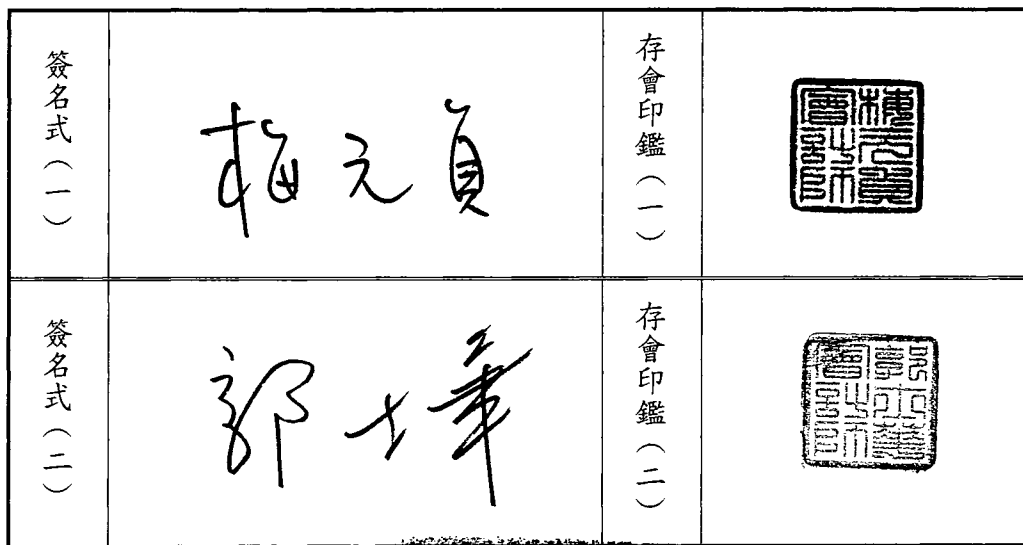 簽名式(一)
梅元貞
存會印鑑(一)
梅元貞會計師
簽名式(二)
郭士華
存會印鑑(二)
會計師